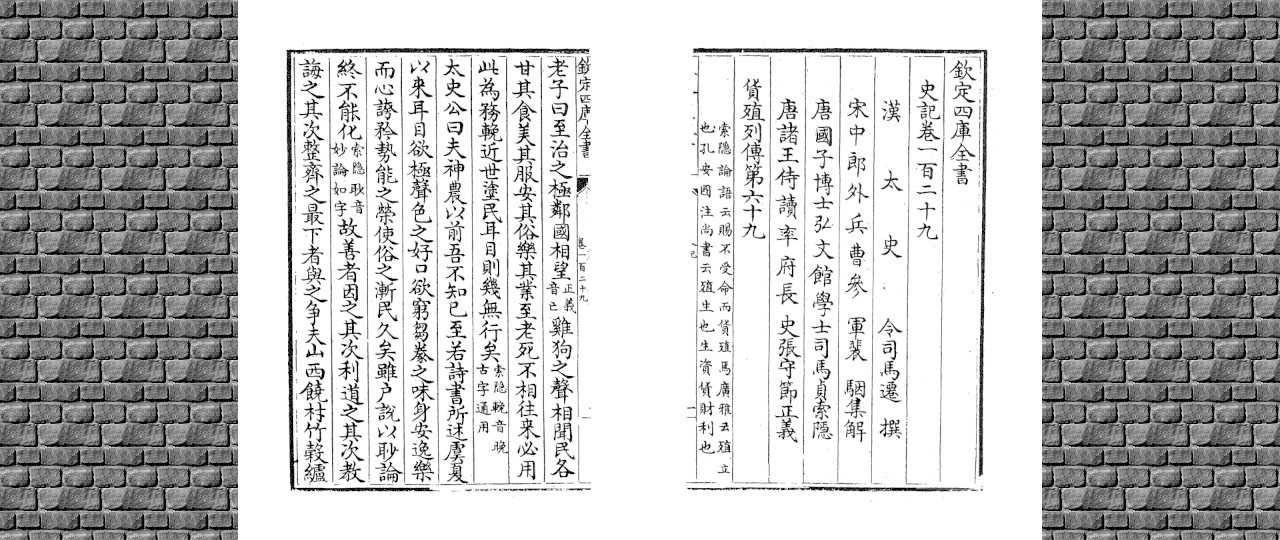 欽定四庫全書
史記卷一百二十九
漢太史令司馬遷撰
宋中郎外兵曹參軍裴駰集解
唐國子博士弘文館學士司馬貞索隱
唐諸王侍讀率府長史張守節正義
貨殖列傳第六十九
索隱論語云賜不受命而貨殖焉廣雅云殖立
也孔安國注尚書云殖生也生資貨財利也
欽定四庫全書
卷一百二十九
老子曰至治之極鄰國相望正義音亡雞狗之聲相聞民各
甘其食美其服安其俗樂其業至老死不相往來必用
此為務輓近世塗民耳目則幾無行矣索隱輓音晚古字通用
太史公曰夫神農以前吾不知已至若詩書所述虞夏
以來耳目欲極聲色之好口欲窮芻豢之味身安逸樂
而心誇矜勢能之榮使俗之漸民久矣雖户說以眇論
終不能化索隱眇音妙論如字故善者因之其次利道之其次教
誨之其次整齊之最下者與之争夫山西饒材竹榖纑